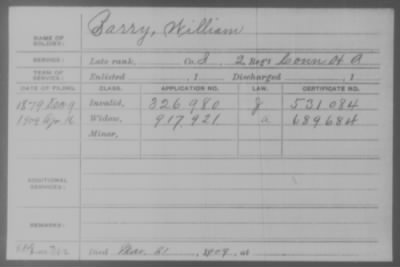 NAME OF SOLDIER: Barry, William
SERVICE: Late rank, Co. I, 2 Reg't Conn H A
TERM OF SERVICE: Enlisted , 1 Discharged , 1
DATE OF FILING. CLASS. APPLICATION NO. LAW. CERTIFICATE NO.
1879 Dec 9 Invalid, 326.980 g 531.084
Apr 16 Widow, 917.921 a 689684
Minor,
ADDITIONAL SERVICES:
REMARKS:
Died Mar 21, 1909, at